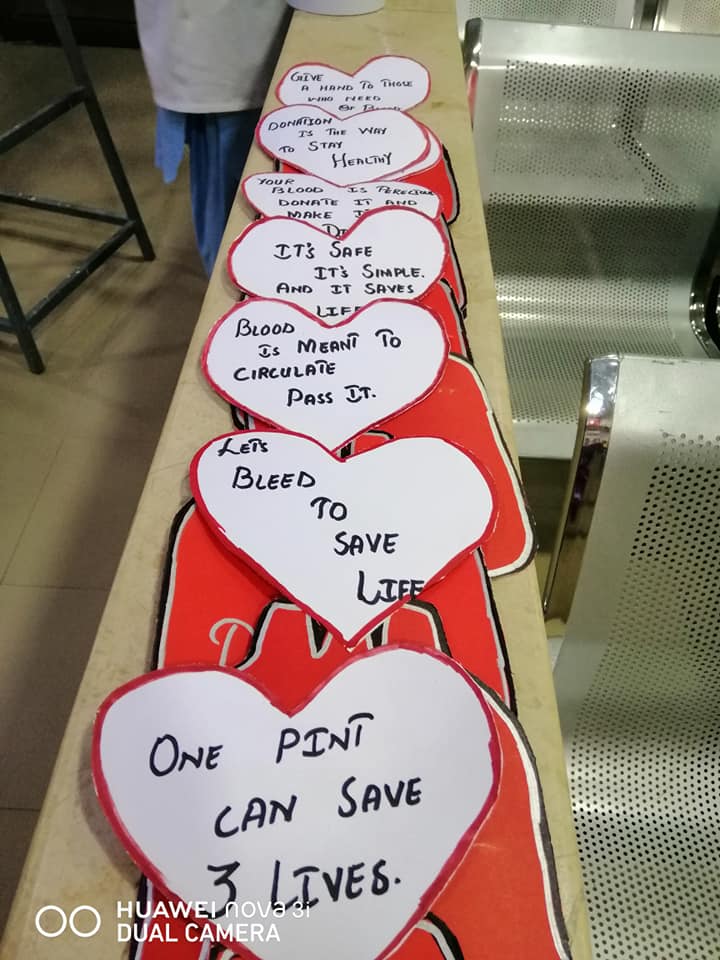 GIVE
A HAND TO THOSE
WHO NEED
OF BLOOD
DONATION
IS THE WAY
TO STAY
HEALTHY
YOUR
BLOOD IS
DONATE IT AND
MAKE
IT'S SAFE
IT'S SIMPLE.
AND IT SAVES
LIFE
BLOOD
IS MEANT TO
CIRCULATE
PASS IT.
LETS
BLEED
TO
SAVE
LIFE
ONE PINT
CAN SAVE
3 LIVES.
HUAWEI nova 3i
DUAL CAMERA